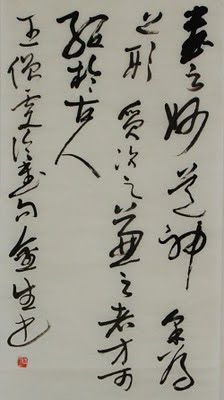 書之妙道神采為
上形質次之兼之者方可
紹於古人
王僧虔論書句金生书